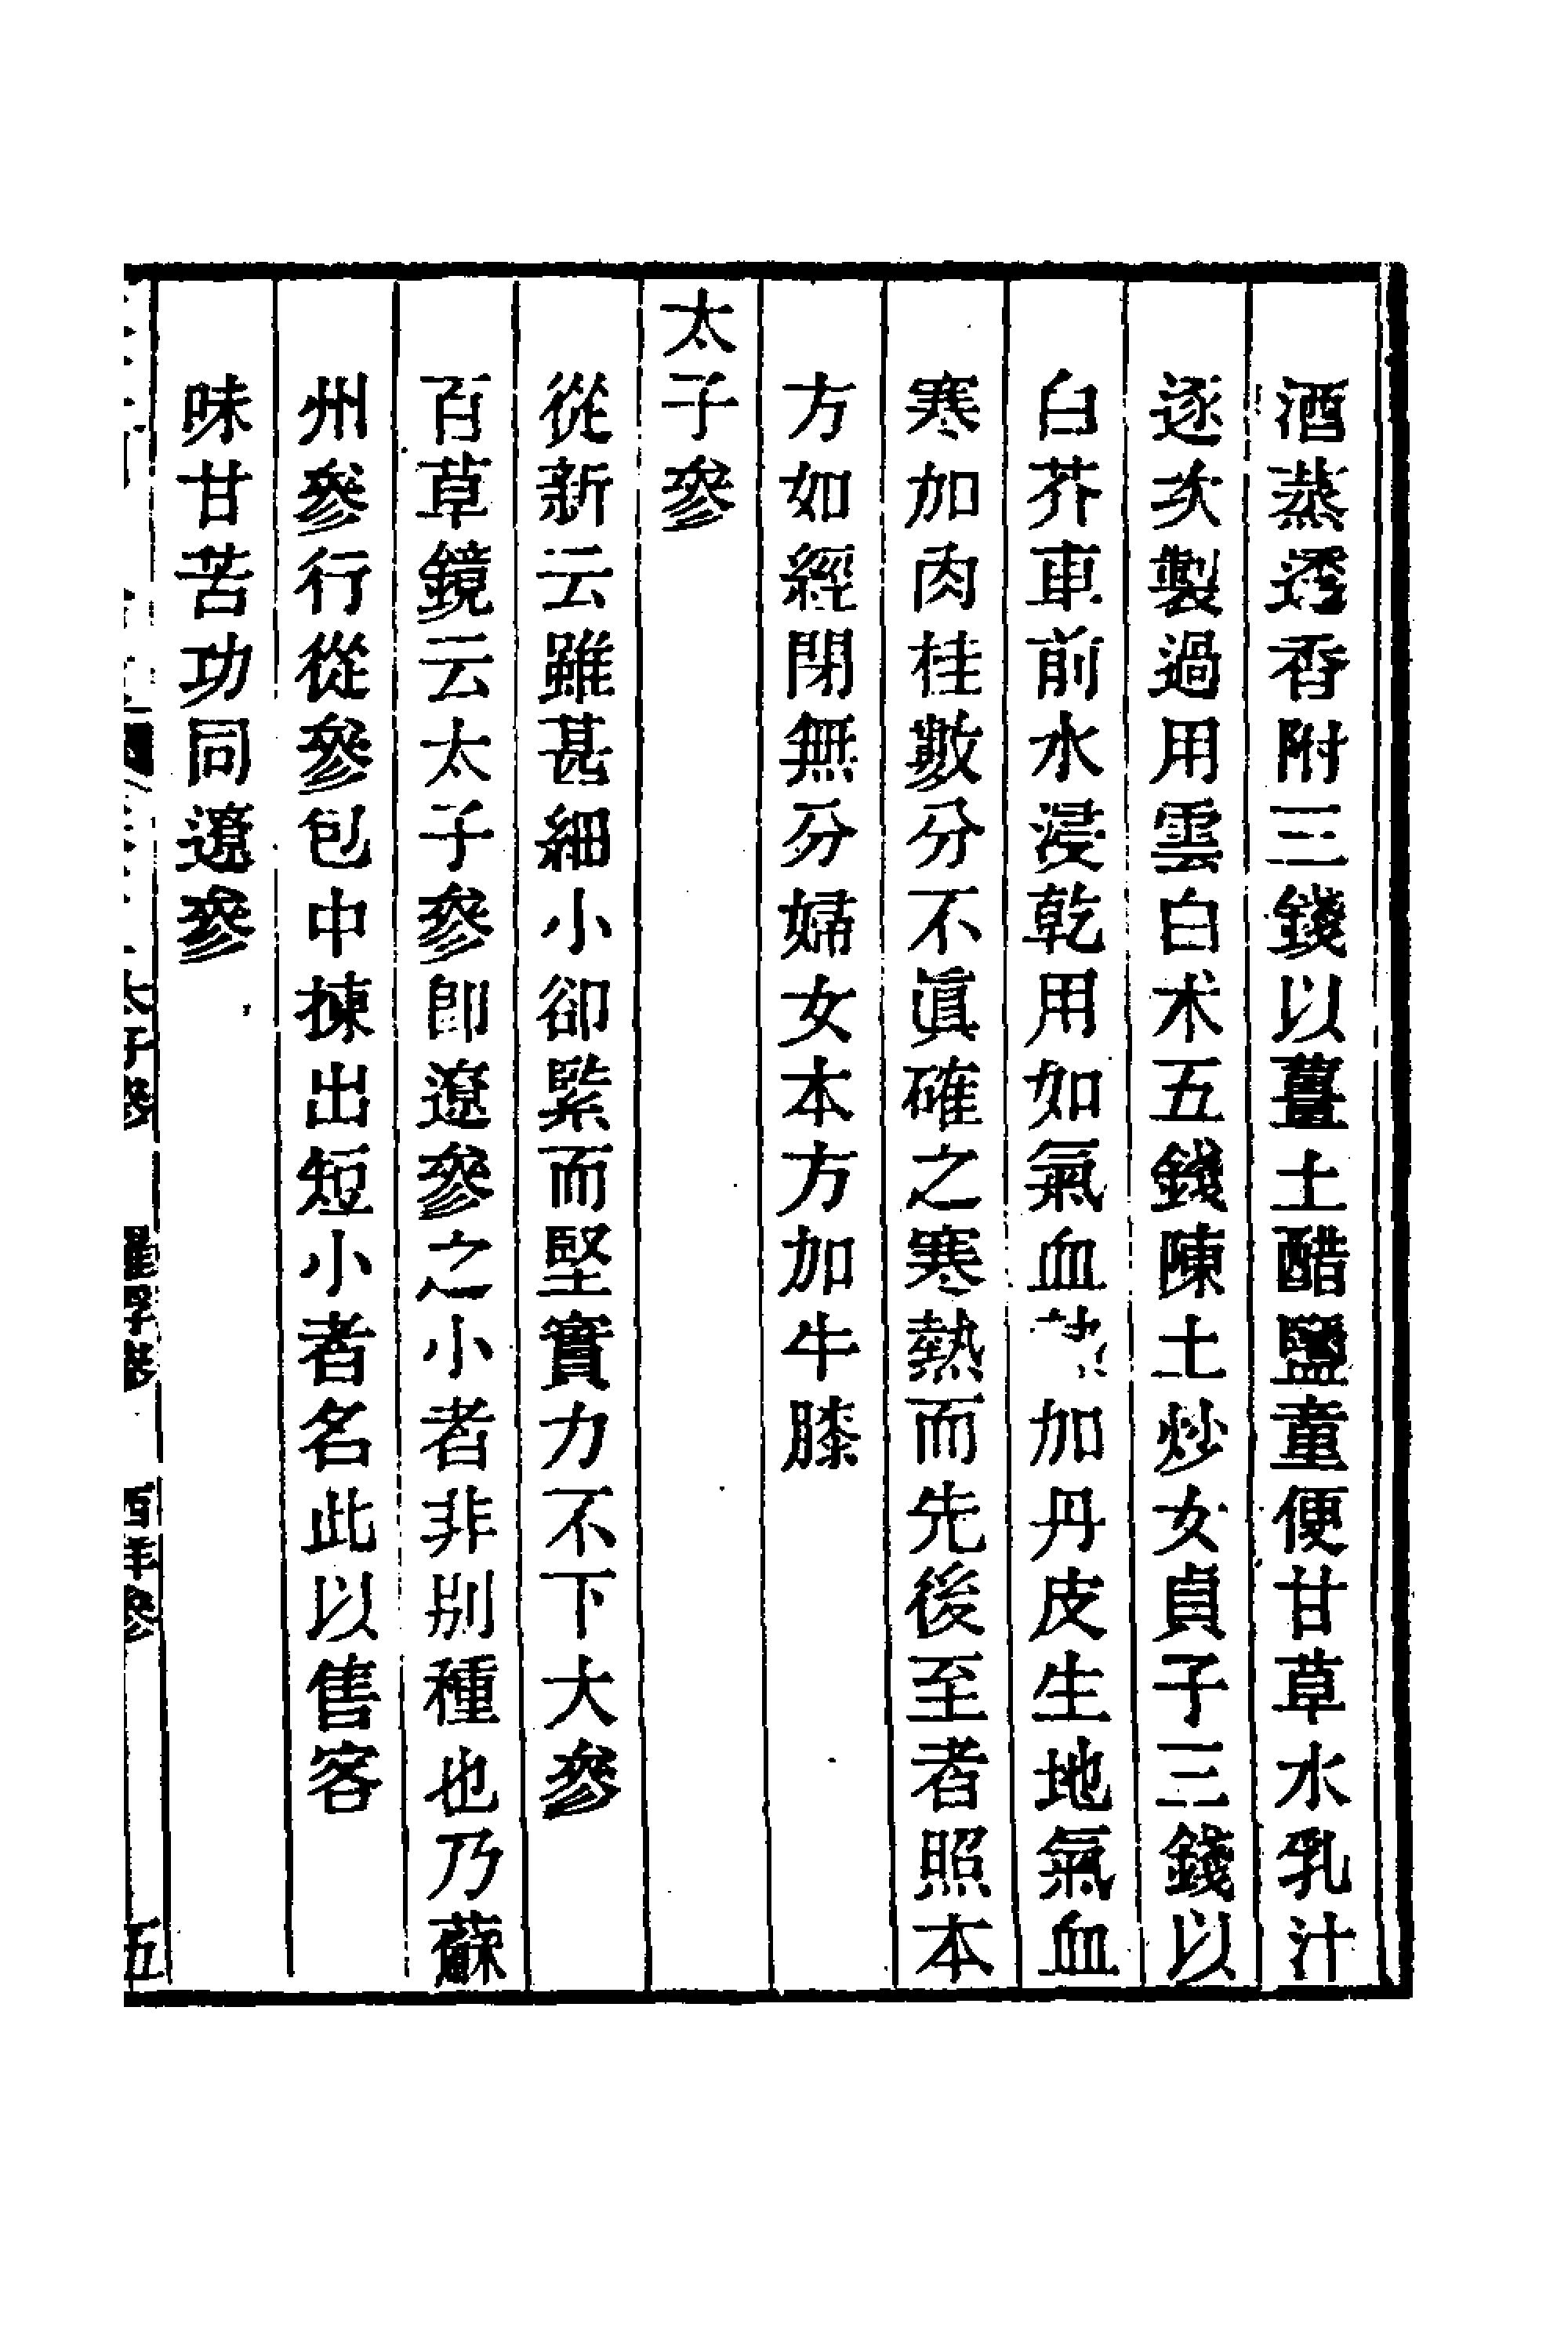 酒蒸透香附三錢以薑土醋鹽童便甘草水乳汁
逐次製過用雲白术五錢陳土炒女貞子三錢以
白芥車前水浸乾用如氣血加丹皮生地氣血
寒加肉桂數分不眞確之寒熱而先後至者照本
方如經閉無分婦女本方加牛膝
太子參
從新云雖甚細小卻緊而堅實力不下大參
百草鏡云太子參卽遼參之小者非別種也乃蘇
州參行從參包中揀出短小者名此以售客
味甘苦功同遼參
太子參 羅浮參 西洋參 五